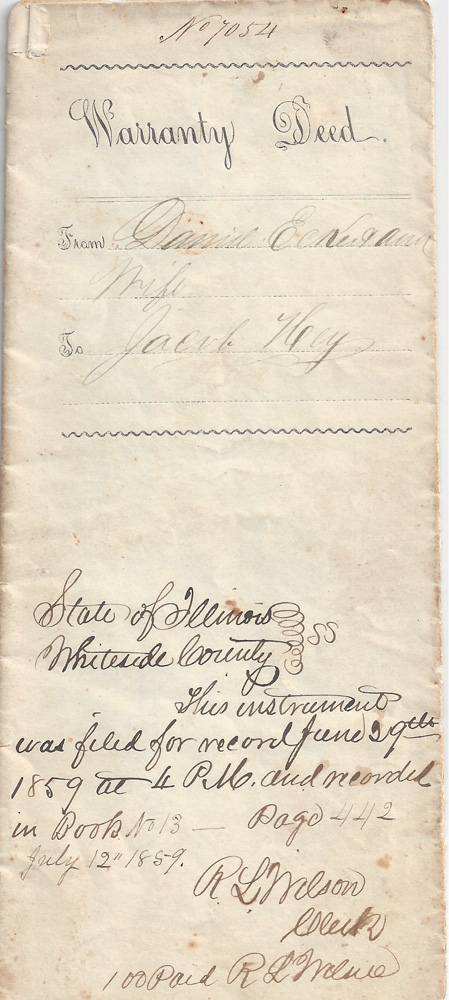 No 7054
Warranty Deed.
From Daniel Eckert and
Wife
To Jacob Hey
State of Illinois
Whiteside County } SS
This instrument
was filed for record June 29th
1859 at 4 P.M. and recorded
in Book No 13 — Page 442
July 12" 1859.
R L Wilson
Clerk
100 Paid R L Wilson